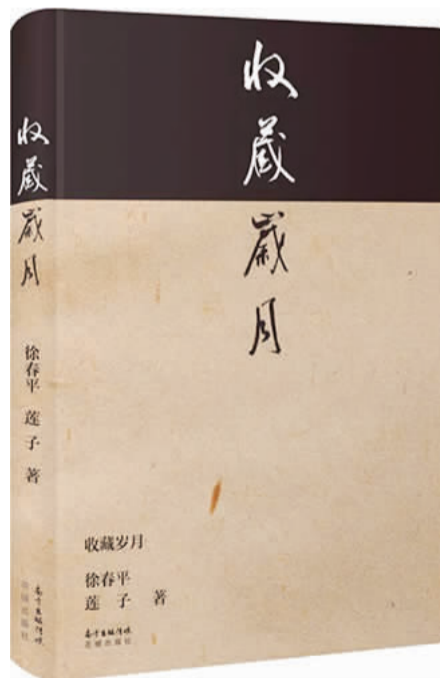 收藏岁月
徐春平 莲子 著
南方出版传媒
花城出版社
收藏岁月
收藏岁月
徐春平
莲 子 著
南方出版传媒
花城出版社